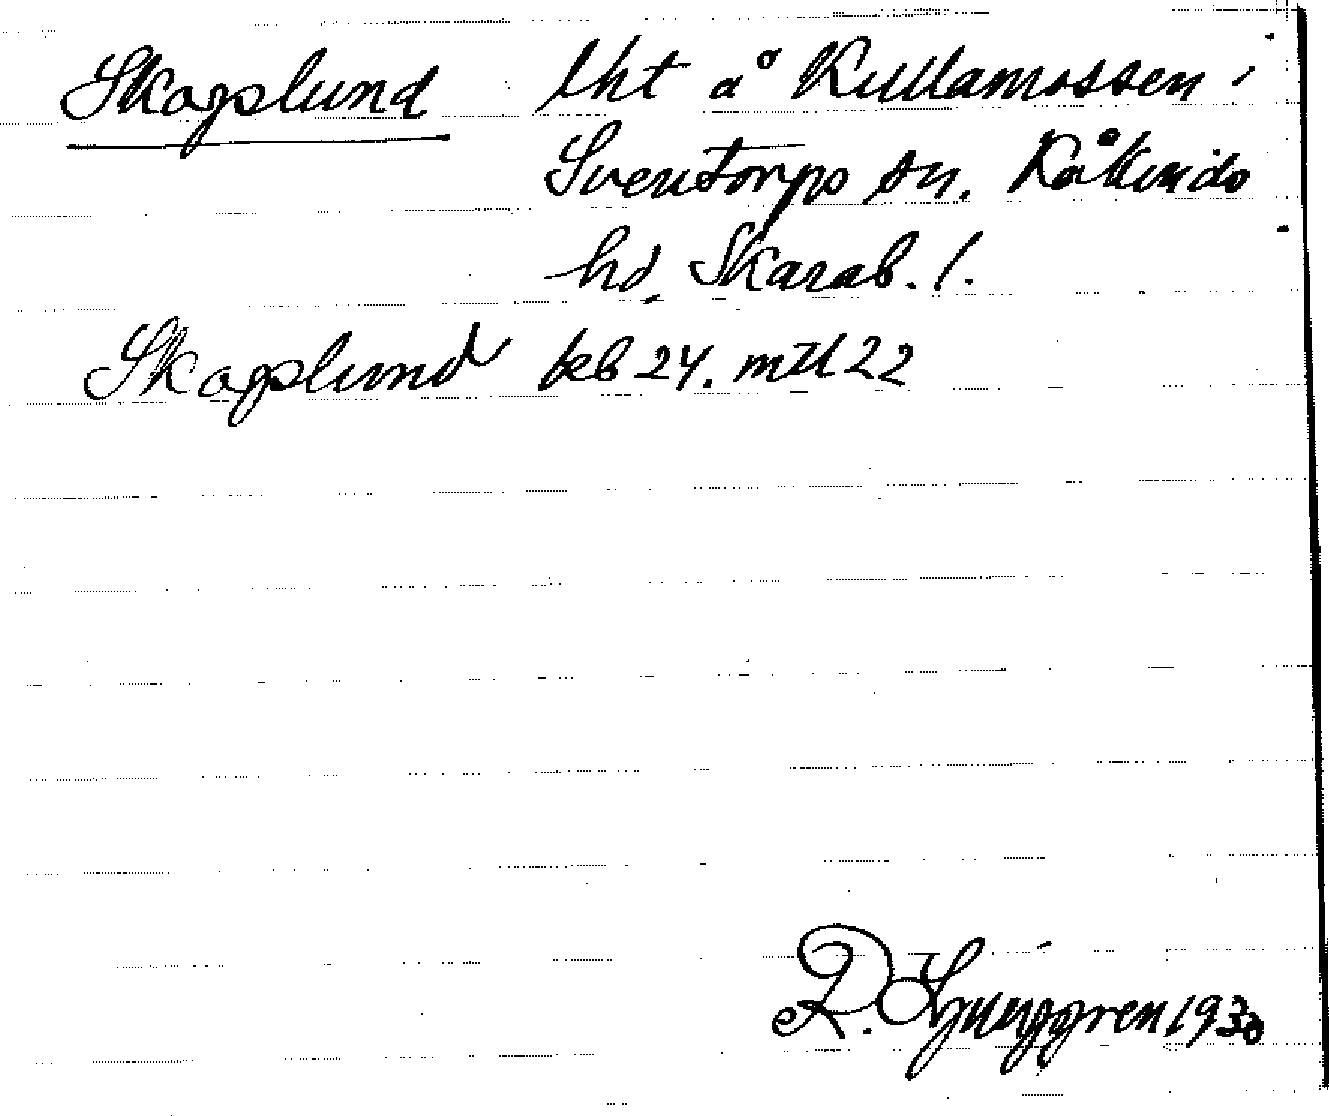 Skogslund lht å Kullamossen i
Sventorps sn. Kåkinds
hd, Skarab. l.
Skogslund kb 24. mtl 22
R. Ljunggren 1930